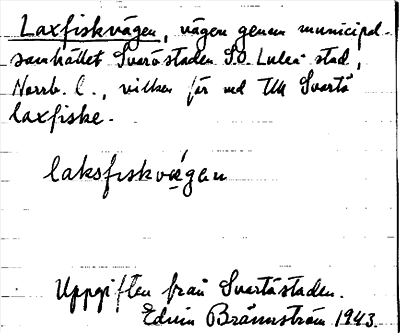 Laxfiskvägen, vägen genom municipal-
samhället Svartöstaden S.O. Luleå stad,
Norrb. l., vilken för ned till Svartö
laxfiske.
laksfiskvägen
Uppgiften från Svartöstaden.
Edvin Brännström 1943.